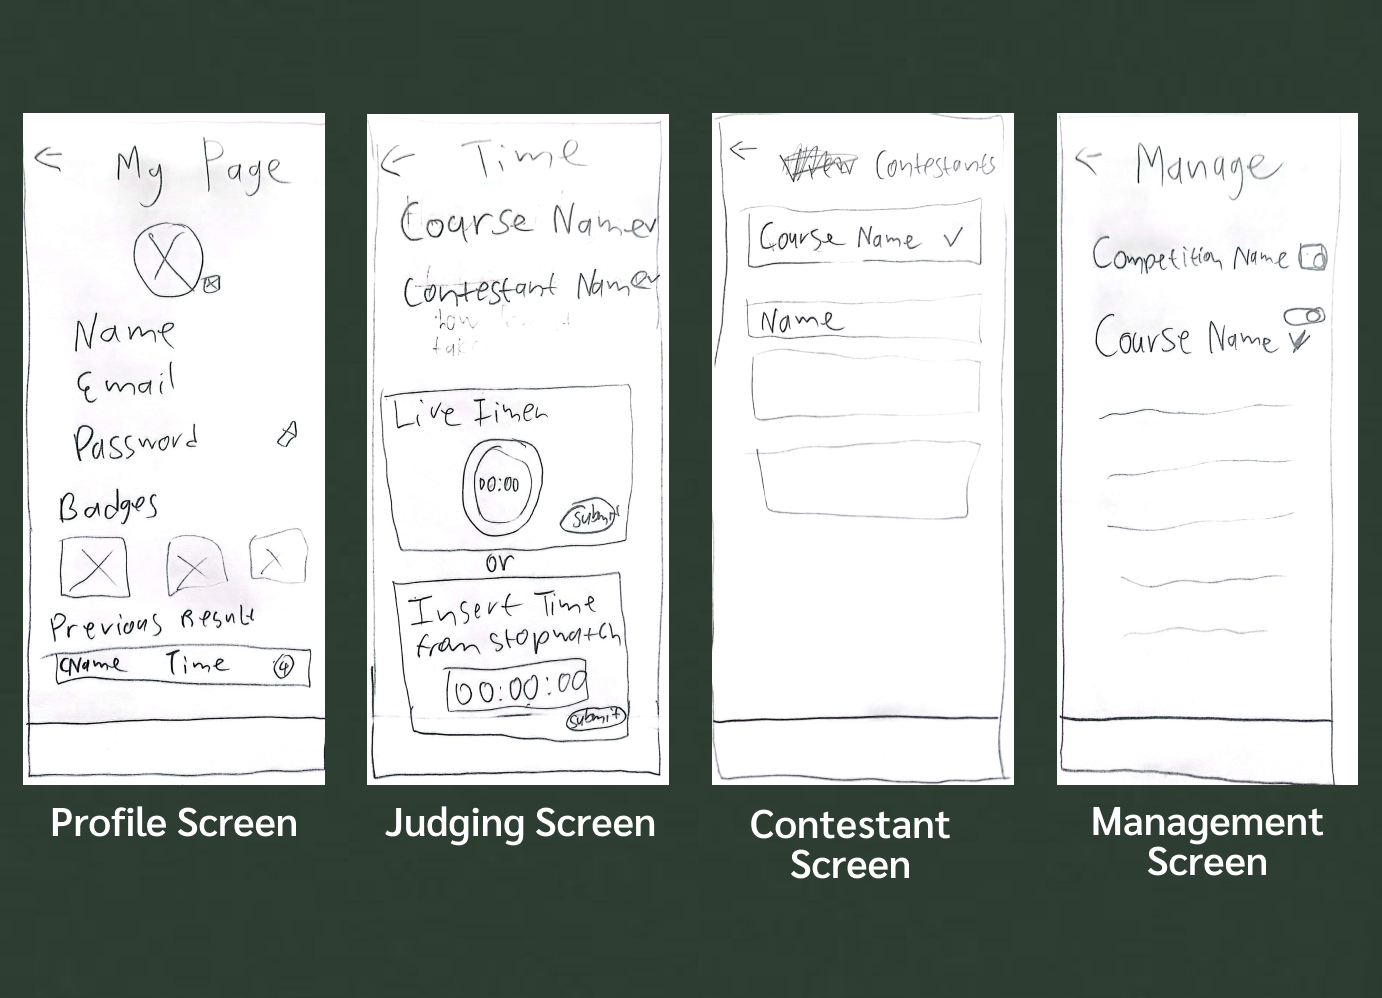 My Page
Name
Email
Password
Badges
Previous Result
CName Time 4
Profile Screen
Time
Course Name
Contestant Name
Live Timer
00:00
Submit
or
Insert Time
from stopwatch
00:00:00
Submit
Judging Screen
Contestants
Course Name
Name
Contestant
Screen
Manage
Competition Name
Course Name
Management
Screen